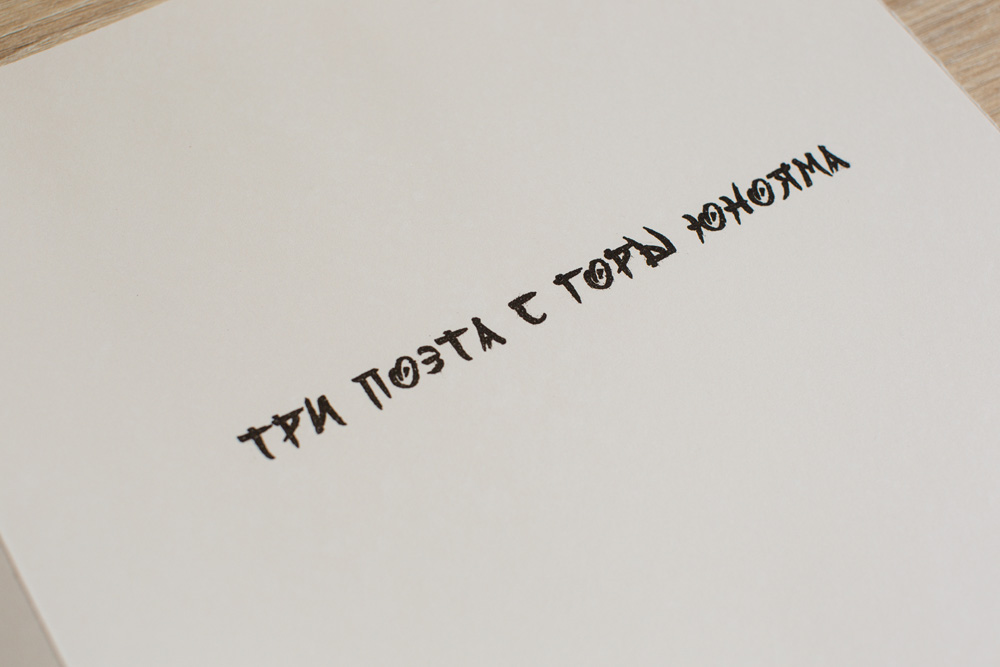 ТРИ ПОЭТА С ГОРЫ ЮНОЯМА